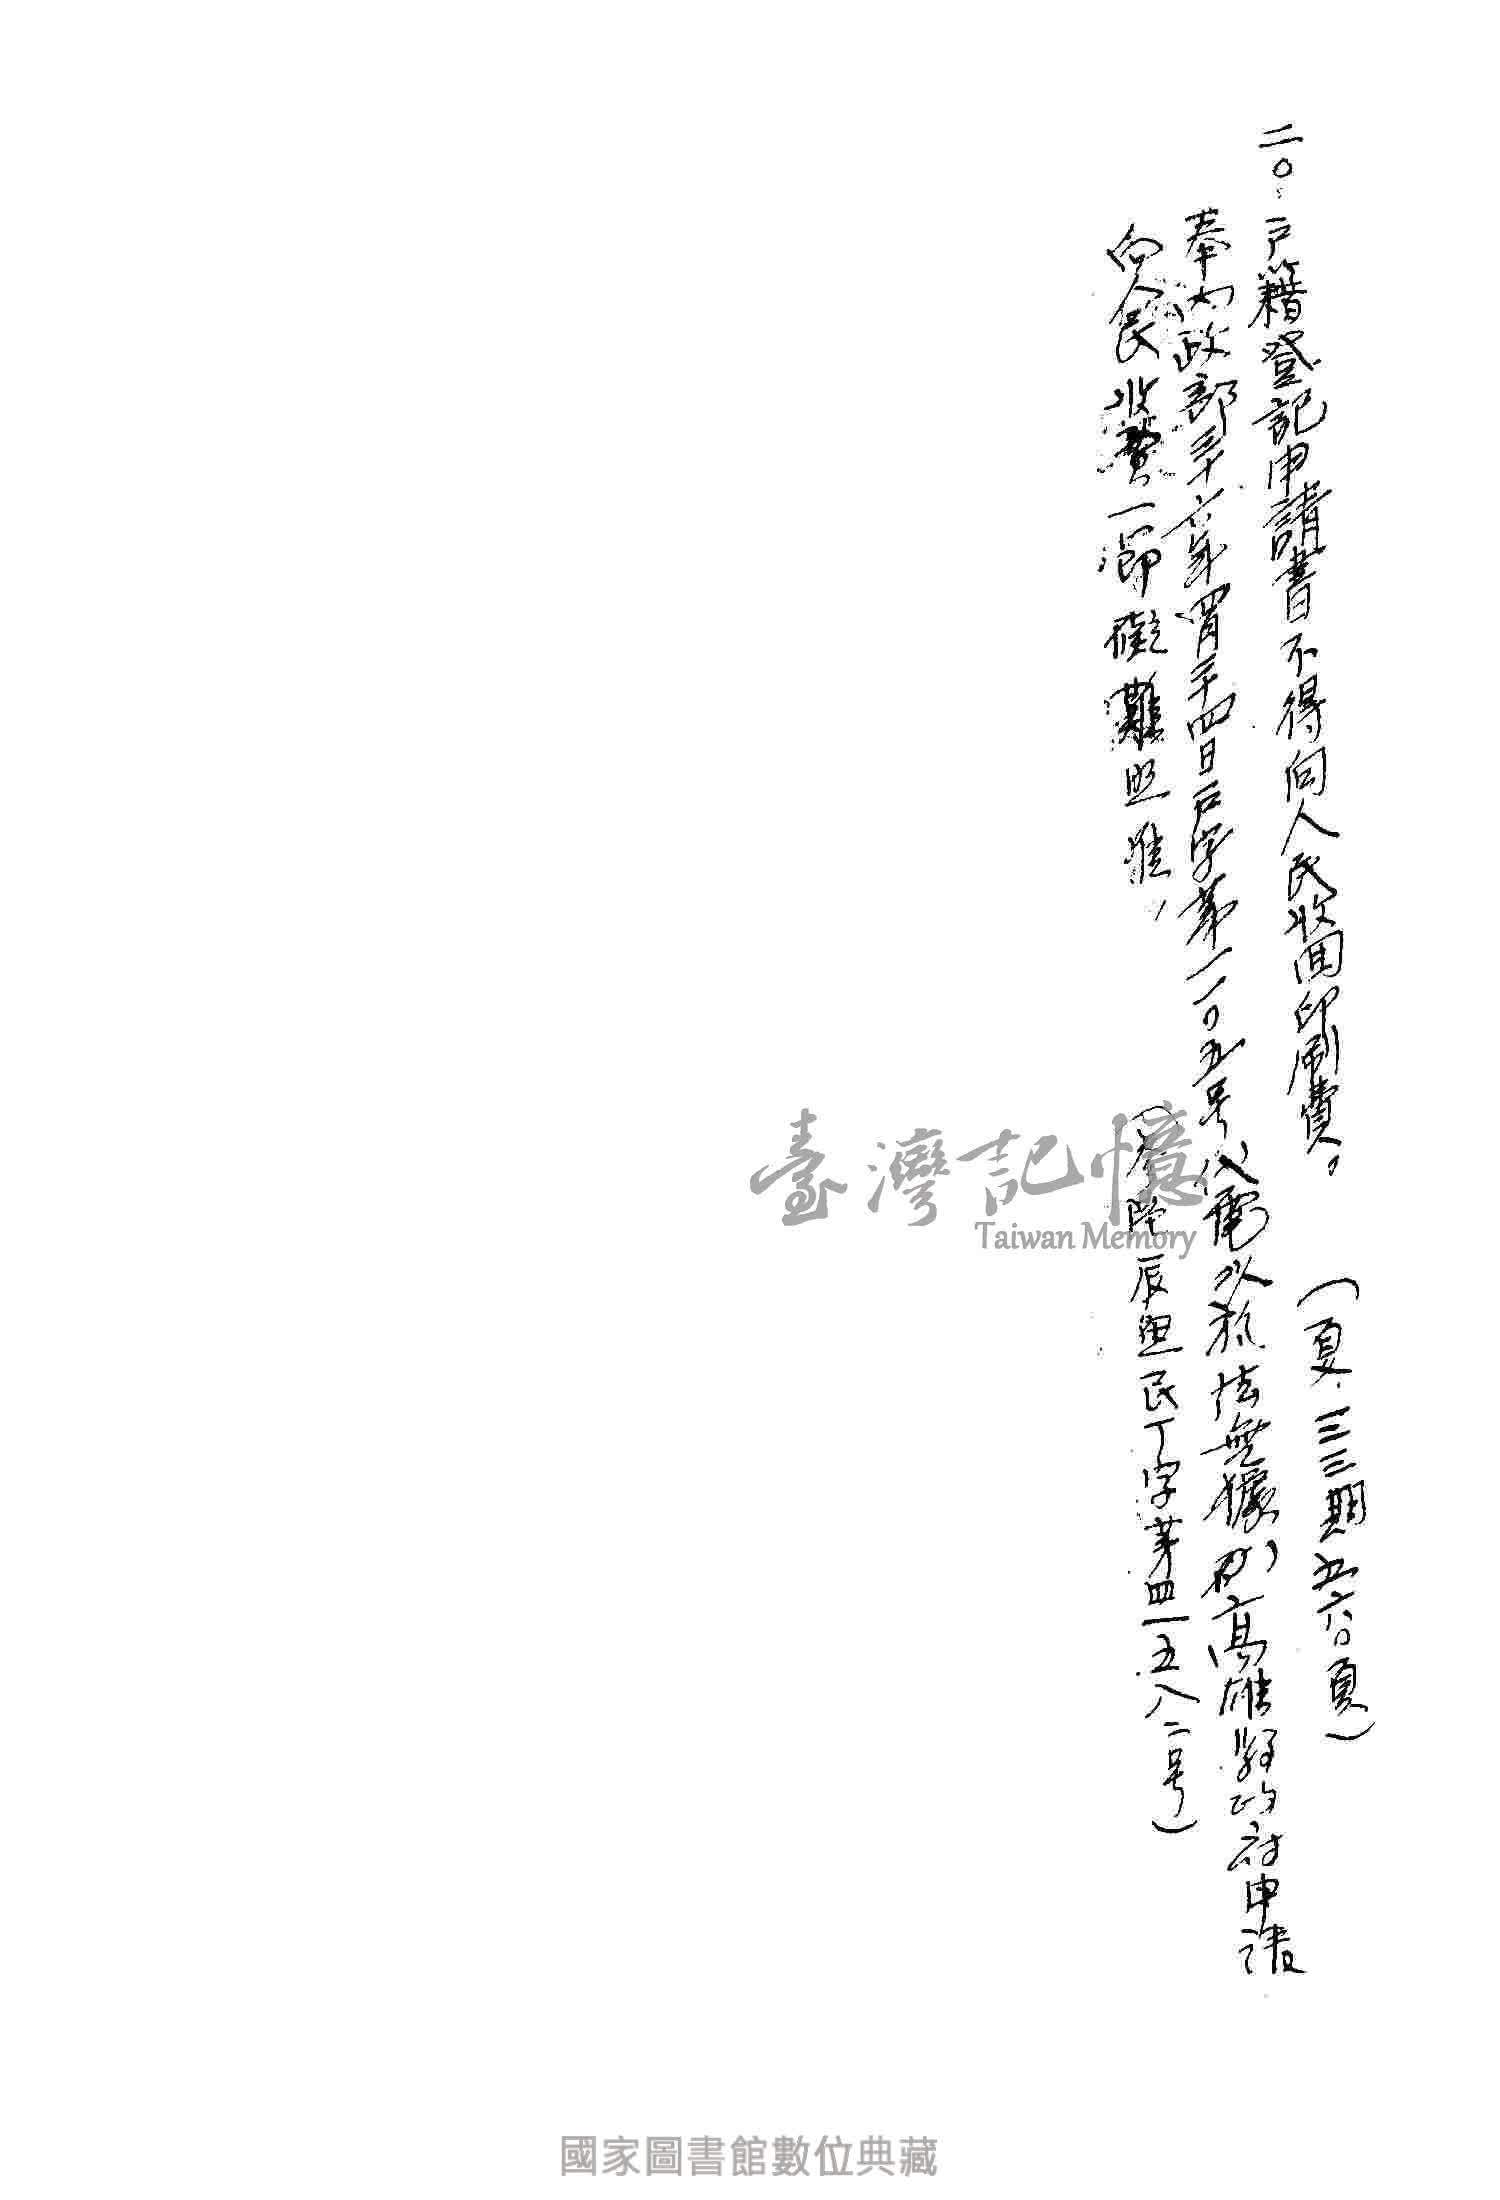 二〇、戶籍登記申請書不得向人民收回印刷費。(夏.三三期五六〇頁)
奉內政部三十六年四月二十四日戶字第一一〇五号代電以於法無據 高雄縣政府申請
向人民收費一節礙難照准，(辰 民丁字第四一五八二号)
臺灣記憶
Taiwan Memory
國家圖書館數位典藏